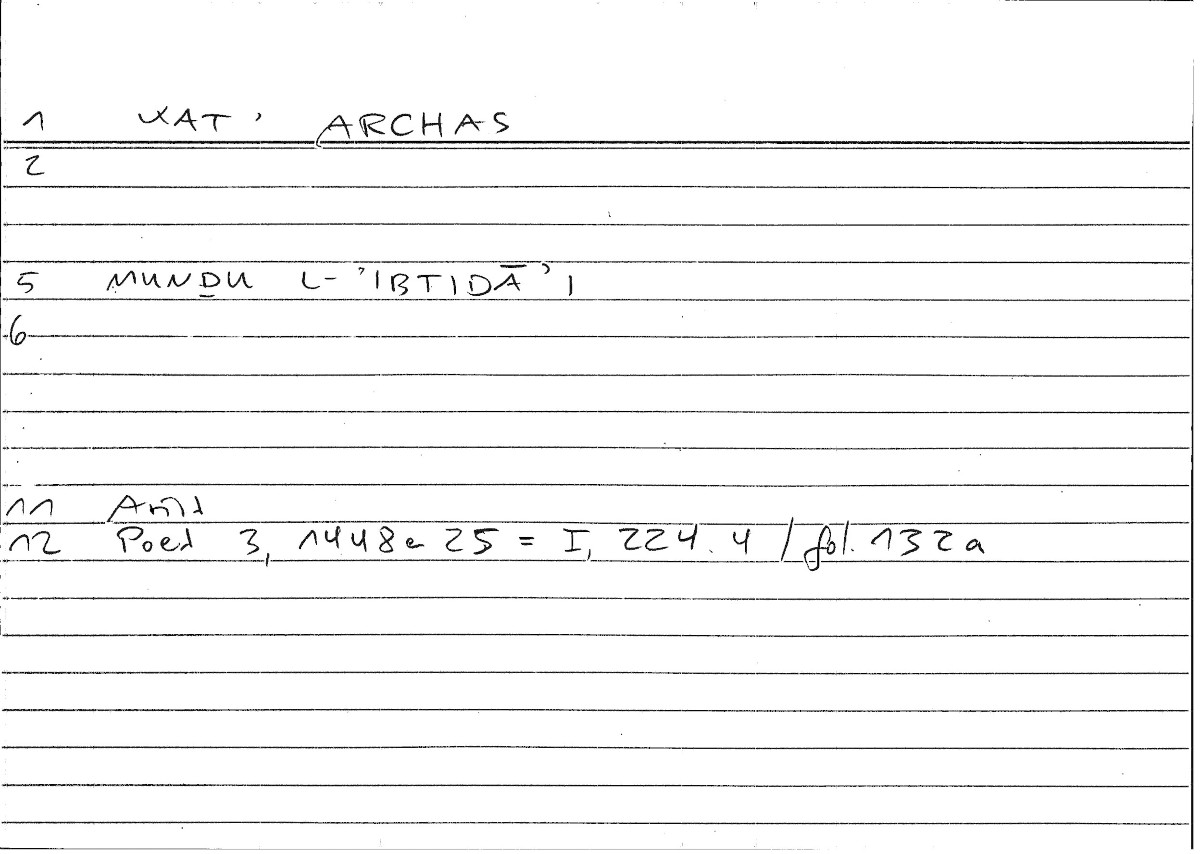 1 KAT' ARCHAS
2
5 MUNḎU L-'IBTIDĀ'I
6
11 Arist
12 Poet 3, 1448a 25 = I, 224.4 / fol. 132a